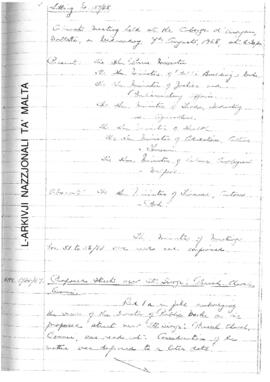 Sitting No 57/68.
Cabinet meeting held at the Cottages d'Aragon,
Valletta, on Wednesday 7th August, 1968, at
Present: The Hon. Prime Minister
The Hon. Minister of Public Building & Works
The Hon. Minister of Justice and
Parliamentary Affairs
The Hon. Minister of Trade, Industry
and Agriculture
The Hon. Minister of Health
The Hon. Minister of Education, Culture
& Tourism
The Hon. Minister of Labour, Employment
& Welfare.
Absent: The Hon. Minister of Finance, Customs
& Port.
The Minutes of Meetings
Nos. 51 to 56/68 were read and confirmed.
Proposed Street near St. George's Parish Church,
Qormi.
Red 1 in file embodying
the views of the Director of Public Works on the
proposed street near St. George's Parish Church,
Qormi, was read. Consideration of the
matter was deferred to a later date.
L-ARKIVJI NAZZJONALI TA' MALTA